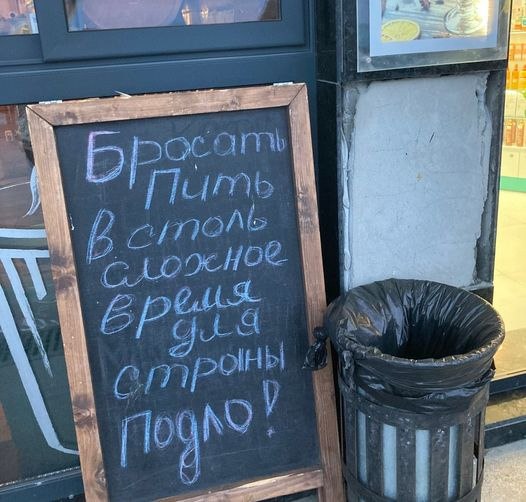 Бросать
Пить
в столь
сложное
время
для
страны
подло!